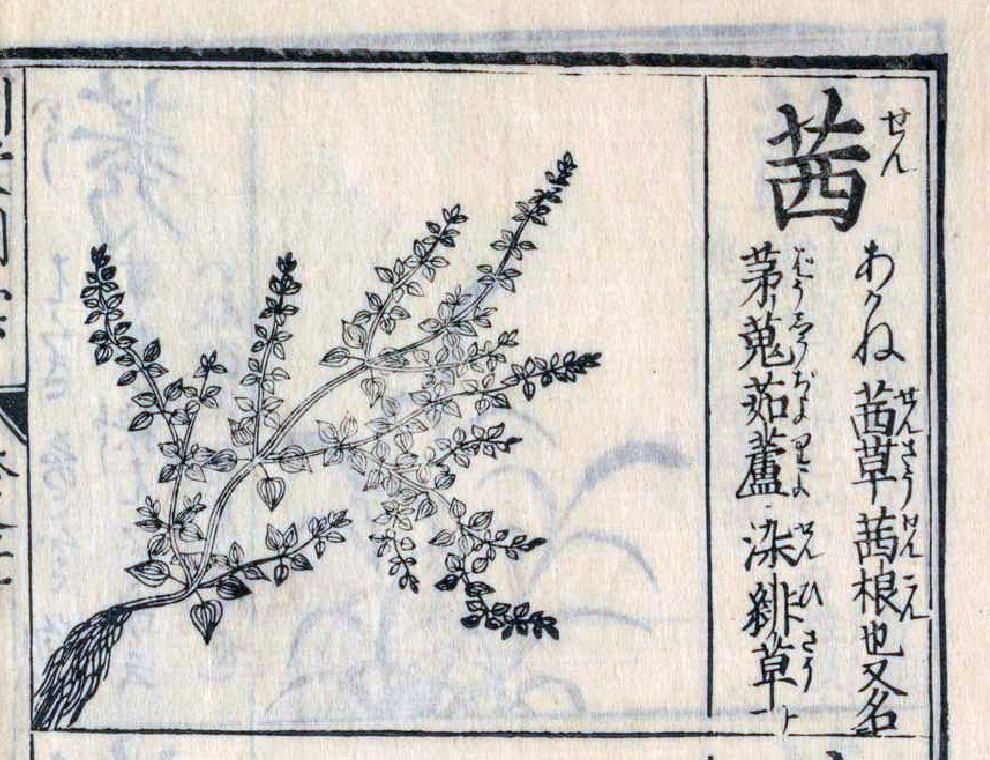 茜
せん
あかね茜草茜根也又名
せんさう
せんこん
茅蒐茹蘆染緋草ト
ばうしう
ぢよりよ
せんひさう